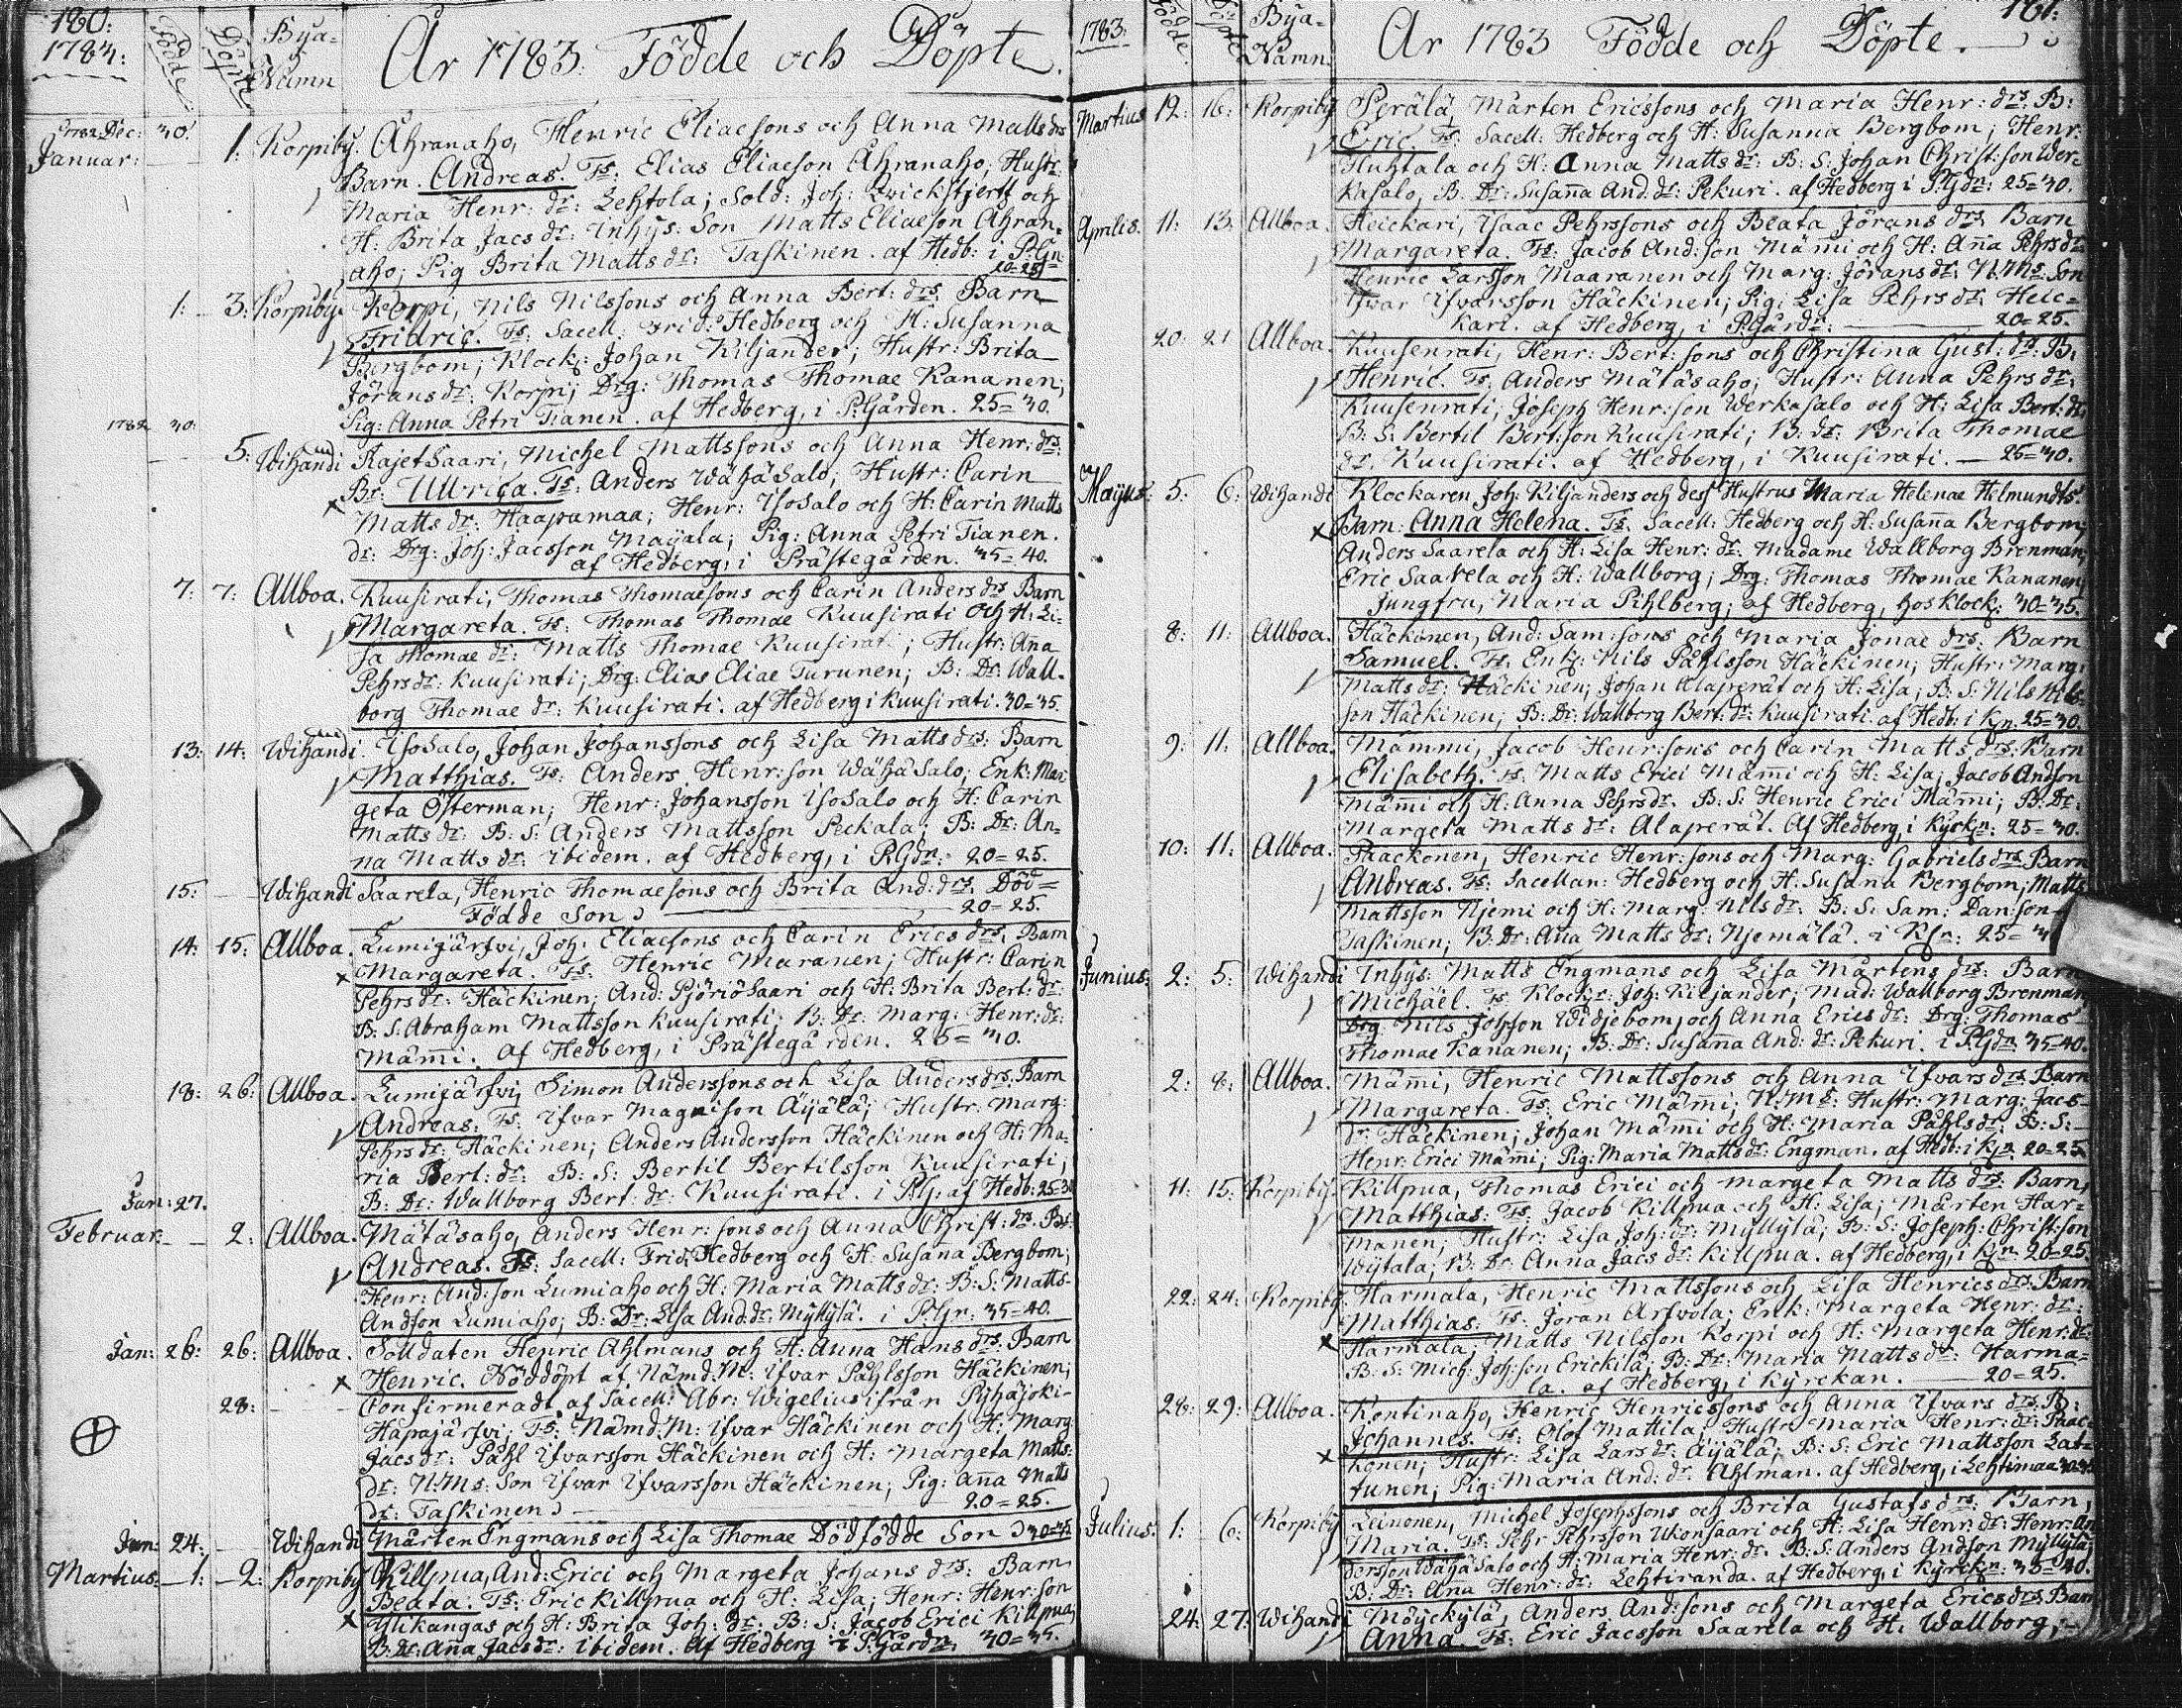 180:
1783:
Födde
Döpte
Bÿa-
Namn
År 1783. Födde och Döpte.
1782 Dec: 30.
Januar: 1: Korpiby. Åhranaho, Henric Eliaesons och Anna Matts drs
Barn. Andreas. Fs: Elias Eliaeson Åhranaho; Hustr:
Maria Henr: dr: Lehtola; Sold: Joh: Qvickstjert och
H: Brita Jacs dr: Inhÿs: Son Matts Eliaeson Åhran-
aho; Pig Brita Matts dr: Taskinen. af Hedb: i P:Gn.
20=25.
1: 3: Korpibÿ. Korpi, Nils Nilssons och Anna Bert: drs: Barn
Fridric. Fs: Sacell: Frid: Hedberg och H: Susanna
Bergbom; Klock: Johan Kiljander; Hustr: Brita
Jörans dr: Korpi; Drg: Thomas Thomae Kananen;
Pig: Anna Petri Tianen. af Hedberg, i P:Gården. 25=30.
1782 30:
5: Wihandi Rajetsaari, Michel Mattssons och Anna Henr: drs:
Br: Ullrica. Fs: Anders Wähäsalo; Hustr: Carin
Matts dr: Haapamaa; Henr: Isosalo och H: Carin Matts
dr: Drg: Joh: Jacsson Maÿala; Pig: Anna Petri Tianen.
af Hedberg, i Prästegården. 35=40.
7: 7: Allboa. Kuusirati, Thomas Thomaesons och Carin Anders drs Barn
Margareta. Fs: Thomas Thomae Kuusirati och H: Li-
sa Thomae dr: Matts Thomae Kuusirati; Hustr: Anna
Pehrs dr: Kuusirati; Drg: Elias Eliae Turunen; B: Dr: Wall-
borg Thomae dr: Kuusirati. af Hedberg i Kuusirati. 30=35.
13: 14: Wihandi. Isosalo, Johan Johanssons och Lisa Matts drs: Barn
Matthias. Fs: Anders Henr: son Wähäsalo; Enk: Mar-
geta Österman; Henr: Johansson Isosalo och H: Carin
Matts dr: B: S: Anders Mattsson Peckala; B: Dr: An-
na Matts dr: ibidem. af Hedberg, i P.Gdn: 20=25.
15: Wihandi Saarela, Henric Thomaesons och Brita And: drs. Död=
Födde Son 20=25.
14: 15: Allboa. Lumijärfvi, Joh: Eliaesons och Carin Erics drs. Barn
Margareta. Fs: Henric Maranen; Hustr: Carin
Pehrs dr: Häckinen; And: Pjöriösaari och H: Brita Bert: dr:
B: S: Abraham Mattsson Kuusirati; B: Dr: Marg: Henr: dr:
Mämi. af Hedberg, i Prästegården. 25=30.
18: 26: Allboa. Lumijärfvi, Simon Anderssons och Lisa Anders drs. Barn
Andreas. Fs: Ifvar Magnison Äÿälä; Hustr: Marg:
Pehrs dr: Häckinen; Anders Andersson Häckinen och H: Ma-
ria Bert: dr: B: S: Bertil Bertilsson Kuusirati;
B: Dr: Wallborg Bert: dr: Kuusirati. i P.G: af Hedb: 25=30
Jan: 27.
Februar: 2: Allboa. Mätäsaho, Anders Henr: sons och Anna Christ: drs. Br:
Andreas. Fs: Sacell: Frid: Hedberg och H: Susana Bergbom;
Henr: And:son Lumiaho och H: Maria Matts dr: B: S: Matts
Andson Lumiaho; B: Dr: Lisa And: dr: Mÿllylä. i P.Gr: 35=40.
Jan: 26: 26: Allboa. Solldaten Henric Ahlmans och H: Anna Hans drs: Barn
Henric. Nöddöpt af Nämd: M: Ifvar Påhlsson Häckinen;
28: Confirmeradt af Sacell: Abr: Wigelius ifrån Pÿhäjoki-
Hapajärfvi; Fs: Nämd: M: Ifvar Häckinen och H: Marg:
Jacs dr: Påhl Ifvarsson Häckinen och H: Margeta Matts
dr: N:Ms: Son Ifvar Ifvarsson Häckinen; Pig: Anna Matts
dr: Taskinen 20=25.
Jan: 24: Wihandi Mårten Engmans och Lisa Thomae Dödfödde Son 30=35
Martius: 1: 2: Korpiby Killpua, And: Erici och Margeta Johans drs: Barn
Beata. Fs: Eric Killpua och H: Lisa; Henr: Henr: son
Ylikangas och H: Brita Joh: dr: B: S: Jacob Erici Killpua;
B: Dr: Ana Jacs dr: ibidem. af Hedberg i P:Gårdn. 30=35.
181:
1783:
Födde.
Döpte
Bÿa-
Namn.
År 1783 Födde och Döpte.
Martius 12: 16: Korpiby Perälä, Mårten Ericssons och Maria Henr: drs: B:
Eric. Fs: Sacell: Hedberg och H: Susanna Bergbom; Henr:
Huhtala och H: Anna Matts dr: B: S: Johan Christ: son Wer-
kasalo, B: Dr: Susana And: dr: Pekuri. af Hedberg i P.Gdn: 25=30.
Aprilis. 11: 13: Allboa. Heickari, Isaac Pehrssons och Beata Jörans drs: Barn
Margareta. Fs: Jacob And: son Mämi och H: Ana Pehrs dr
Henric Larsson Maaranen och Marg: Jörans dr: N:Ms: Son
Ifvar Ifvarsson Häckinen; Pig: Lisa Pehrs dr: Heic-
kari. af Hedberg, i P.Gårdn: 20=25.
20: 21 Allboa. Kuusenrati, Henr: Bert: sons och Christina Gust: drs: B:
Henric. Fs: Anders Mätäsaho; Hustr: Anna Pehrs dr:
Kuusenrati; Joseph Henr: son Werkasalo och H: Lisa Bert: dr:
B: S: Bertil Bert: son Kuusirati; B: dr: Brita Thomae
dr. Kuusirati. af Hedberg, i Kuusirati. — 25=30.
Majus: 5: 6: Wihandi Klockaren Joh: Kiljanders och dess Hustrus Maria Helenae Helmundts
Barn: Anna Helena. Fs: Sacell: Hedberg och H: Susana Bergbom;
Anders Saarela och H: Lisa Henr: dr: Madame Wallborg Brenman;
Eric Saarela och H: Wallborg; Drg: Thomas Thomae Kananen;
Jungfru, Maria Pihlberg; af Hedberg, hos Klock: 30=35.
8: 11: Allboa. Häckinen, And: Sam: sons och Maria Jonae drs: Barn
Samuel. Fs: Enk: Nils Påhlsson Häckinen; Hustr: Marg:
Matts dr: Häckinen; Johan Alaperät och H: Lisa; B: S: Nils Nils-
son Häckinen; B: Dr: Wallborg Bert: dr: Kuusirati. af Hedb: i Kn. 25=30.
9: 11: Allboa. Mämmi, Jacob Henr: sons och Carin Matts drs: Barn
Elisabeth. Fs: Matts Erici Mämi och H: Lisa; Jacob Andson
Mämi och H: Anna Pehrs dr. B: S: Henric Erici Mämi; B: Dr:
Margeta Matts dr: Alaperät. Af Hedberg, i Kÿrkn: 25=30.
10: 11: Allboa. Paackonen, Henric Henr: sons och Marg: Gabriels drs Barn
Andreas. Fs: Sacellan: Hedberg och H: Susana Bergbom; Matts
Mattsson Njemi och H: Marg: Nils dr: B: S: Sam: Dan: son
Taskinen; B: Dr: Ana Matts dr: Njemälä. i Kn: 25=
Junius: 2: 5: Wihandi Inhÿs: Matts Engmans och Lisa Mårtens drs: Barn
Michael. Fs: Klockr: Joh: Kiljander; Mad: Wallborg Brenman
Drg Nils Johsson Widjebom, och Anna Erics dr: Drg: Thomas
Thomae Kananen; B: Dr: Susana And: dr: Pekuri. i P.Gdn. 35=40.
2: 8: Allboa. Mämi, Henric Mattssons och Anna Ifvars drs. Barn
Margareta. Fs: Eric Mämi; N:Ms: Hustr: Marg: Jacs-
dr: Häckinen; Johan Mämi och H: Maria Påhls dr: B: S:
Henr: Erici Mämi; Pig: Maria Matts dr: Engman. af Hedb: i Kn. 20=25
11: 15: Korpibÿ. Killpua, Thomas Erici och Margeta Matts drs: Barn,
Matthias: Fs: Jacob Killpua och H: Lisa; Mårten Har-
manen; Hustr: Lisa Joh: dr: Myllylä; B: S: Joseph: Christ: son
Wÿtala; B: Dr: Anna Jacs dr: Killpua. af Hedberg, i Kn. 20=25.
22: 24: Korpiby Harmala, Henric Mattssons och Lisa Henrics drs. Barn
Matthias. Fs: Jöran Arfvola; Enk: Margeta Henr: dr:
Harmala; Matts Nilsson Korpi och H: Margeta Henr: dr:
B: S: Mich: Joh: son Erickilä; B: Dr: Maria Matts dr: Harma-
la. af Hedberg, i Kÿrckan. 20=25.
28: 29: Allboa. Kontinaho, Henric Henricssons och Anna Ifvars drs. B:
Johannes. Fs: Olof Mattila; Hustr: Maria Henr: dr: Paac-
konen; Hustr: Lisa Lars dr: Äÿälä; B: S: Eric Mattsson Lat-
tunen; Pig: Maria And: dr. Ahlman. af Hedberg, i Lehtimaa
Julius: 1: 6: Korpibÿ Leinonen, Michel Josephssons och Brita Gustafs drs: Barn,
Maria. Fs: Pehr Pehrsson Ukonsaari och H: Lisa Henr: dr: Henr: An
dersson Wähäsalo och H: Maria Henr: dr. B: S: Anders Andson Mÿllylä;
B: Dr: Ana Henr: dr: Lehtiranda. af Hedberg, i Kÿrckn: 35=40.
24: 27: Wihandi Möyckylä, Anders And: sons och Margeta Erics drs Barn
Anna. Fs: Eric Jacsson Saarela och H: Wallborg;